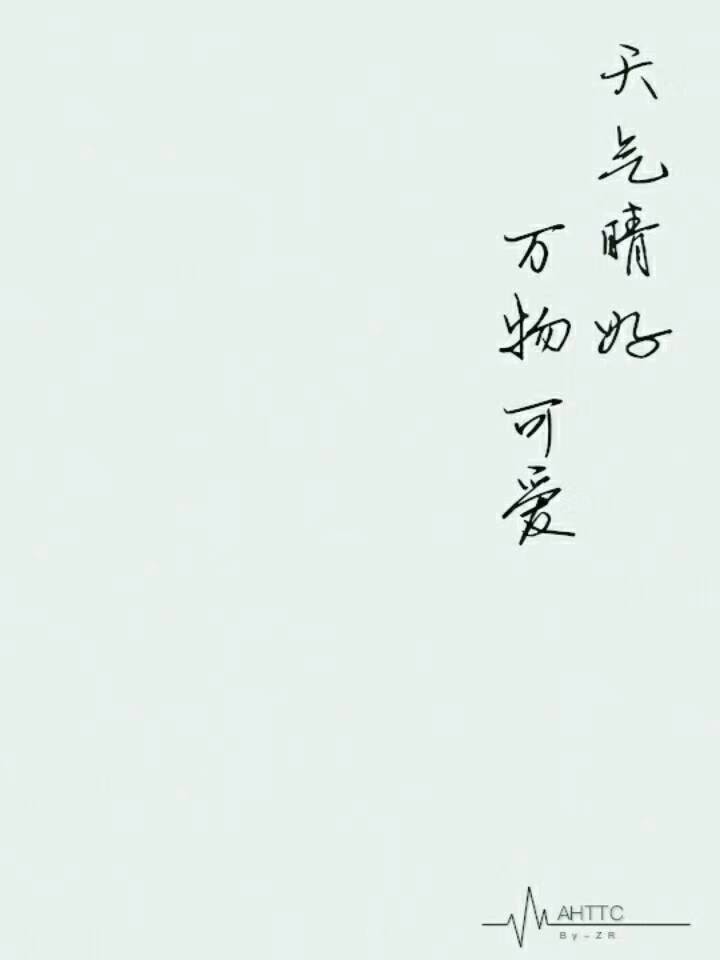 天气晴好
万物可爱
AHTTC
By-ZR